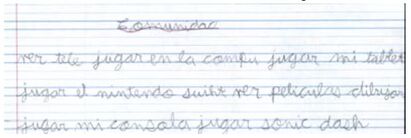 Comunidad
ver tele jugar en la compu jugar mi tablet
jugar el nintendo suiht ver peliculas dibujar
jugar mi consola jugar sonic dash